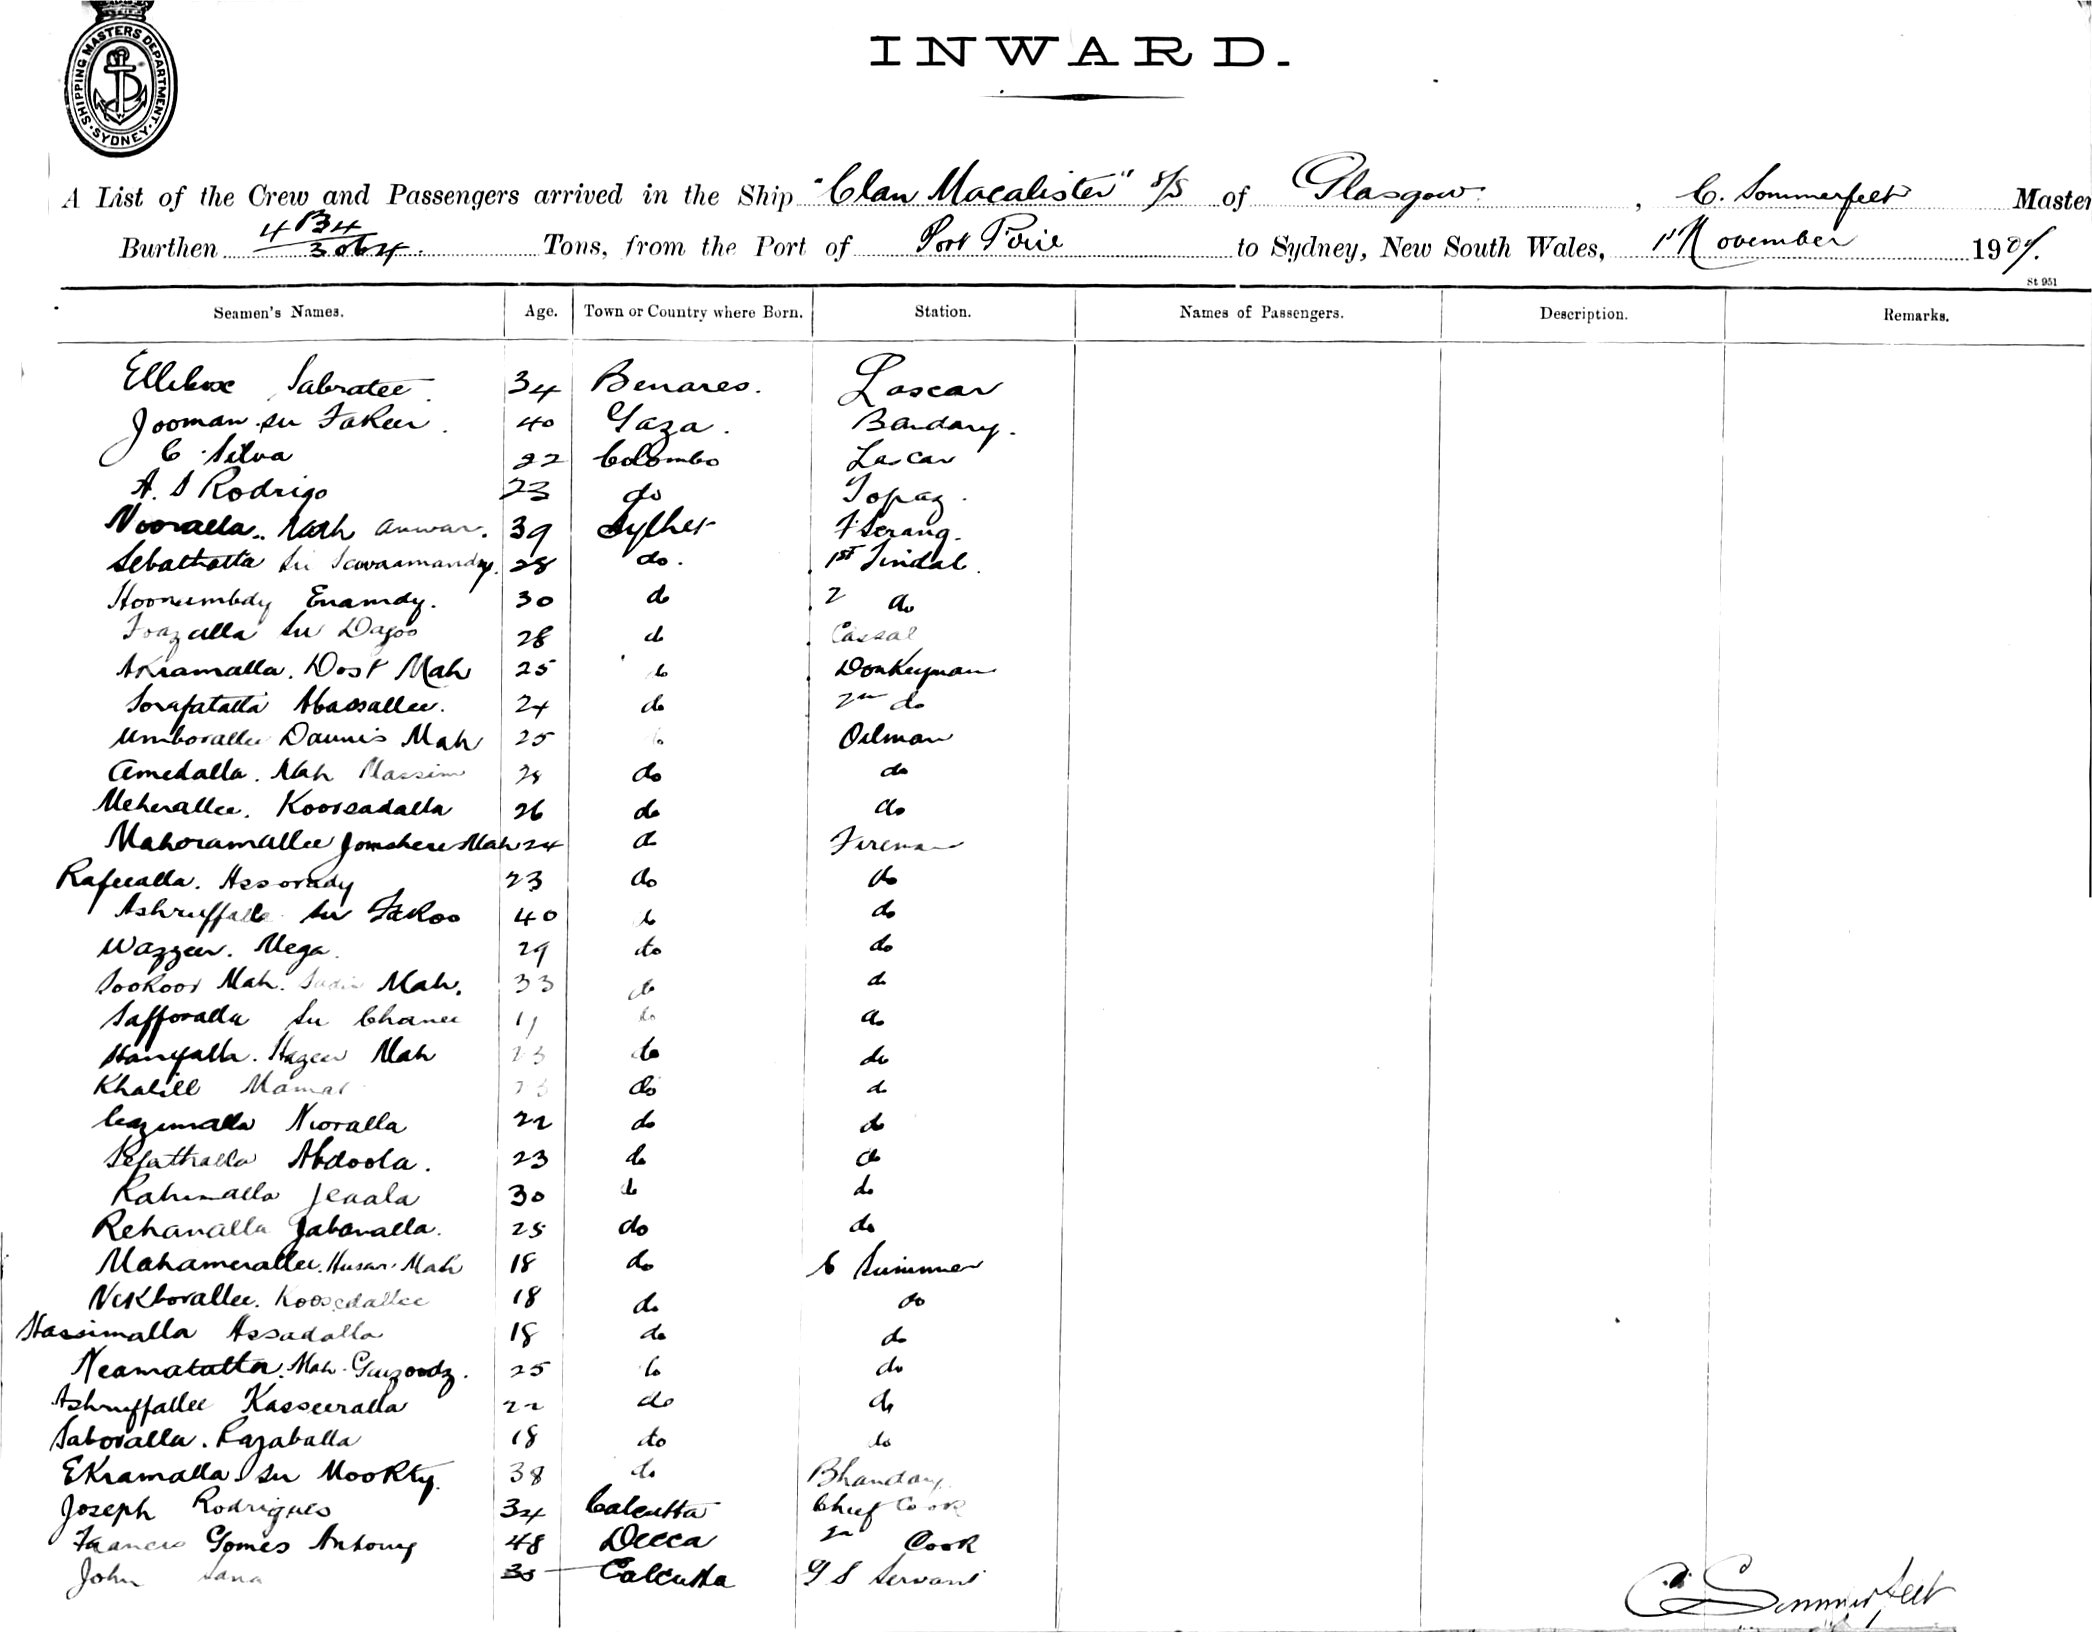 SHIPPING MASTERS DEPARTMENT. SYDNEY
INWARD.
A List of the Crew and Passengers arrived in the Ship "Clan Macalister" s/s of Glasgow, C. Sommerfelt Master
Burthen 3064 Tons, from the Port of Port Pirie to Sydney, New South Wales, 1st November 190
St 951
Seamen's Names. Age. Town or Country where Born. Station. Names of Passengers. Description. Remarks.
Ellibux Sabratee 34 Benares. Lascar
Jooman su Fakeer. 40 Gaza. Bandary.
C Silva 22 Colombo Lascar
A. S Rodrigo 23 do Topaz.
Nooralla. Mah Anwar. 39 Sylhet F Serang.
Sebathalla su 28 do. 1st Tindal.
Enamdy. 30 do 2 do
su Dagoo 28 do Cassal
Akramalla. Dost Mah 25 do Donkeyman
Sorafatalla Abassallee. 24 do 2nd do
Umborallee Daunis Mah 25 do Oilman
Amedalla. Mah Nassim 28 do do
Meherallee. Koorsadalla 26 do do
Mahoramallee Jomshere Mah 24 do Fireman
Rafeealla. Assorady 23 do do
Ashruffalle su Fakoo 40 do do
Wazzeer. Mega. 29 do do
Sookoor Mah. Mah. 33 do do
Safforalla su Chanee do do
Mah 23 do do
Khalill Mamat 23 do do
Cazimalla Nooralla 22 do do
Sefathalla Abdoola. 23 do do
Rahimalla Jenala 30 do do
Rehanalla Jabanalla. 25 do do
Mahamerallee. Husan Mah 18 do C Simmer
Nekborallee. Koosedallee 18 do do
Hassimalla Assadalla 18 do do
Neamatalla. Mah. 25 do do
Ashruffallee Kasseeralla 22 do do
Saboralla. Razaballa 18 do do
Ekramalla su Mookty. 38 do Bhandary
Joseph Rodrigues 34 Calcutta Chief Cook
Francis Gomes Antony 48 Decca 2n Cook
John Sana Calcutta G S Servant
C Sommerfelt